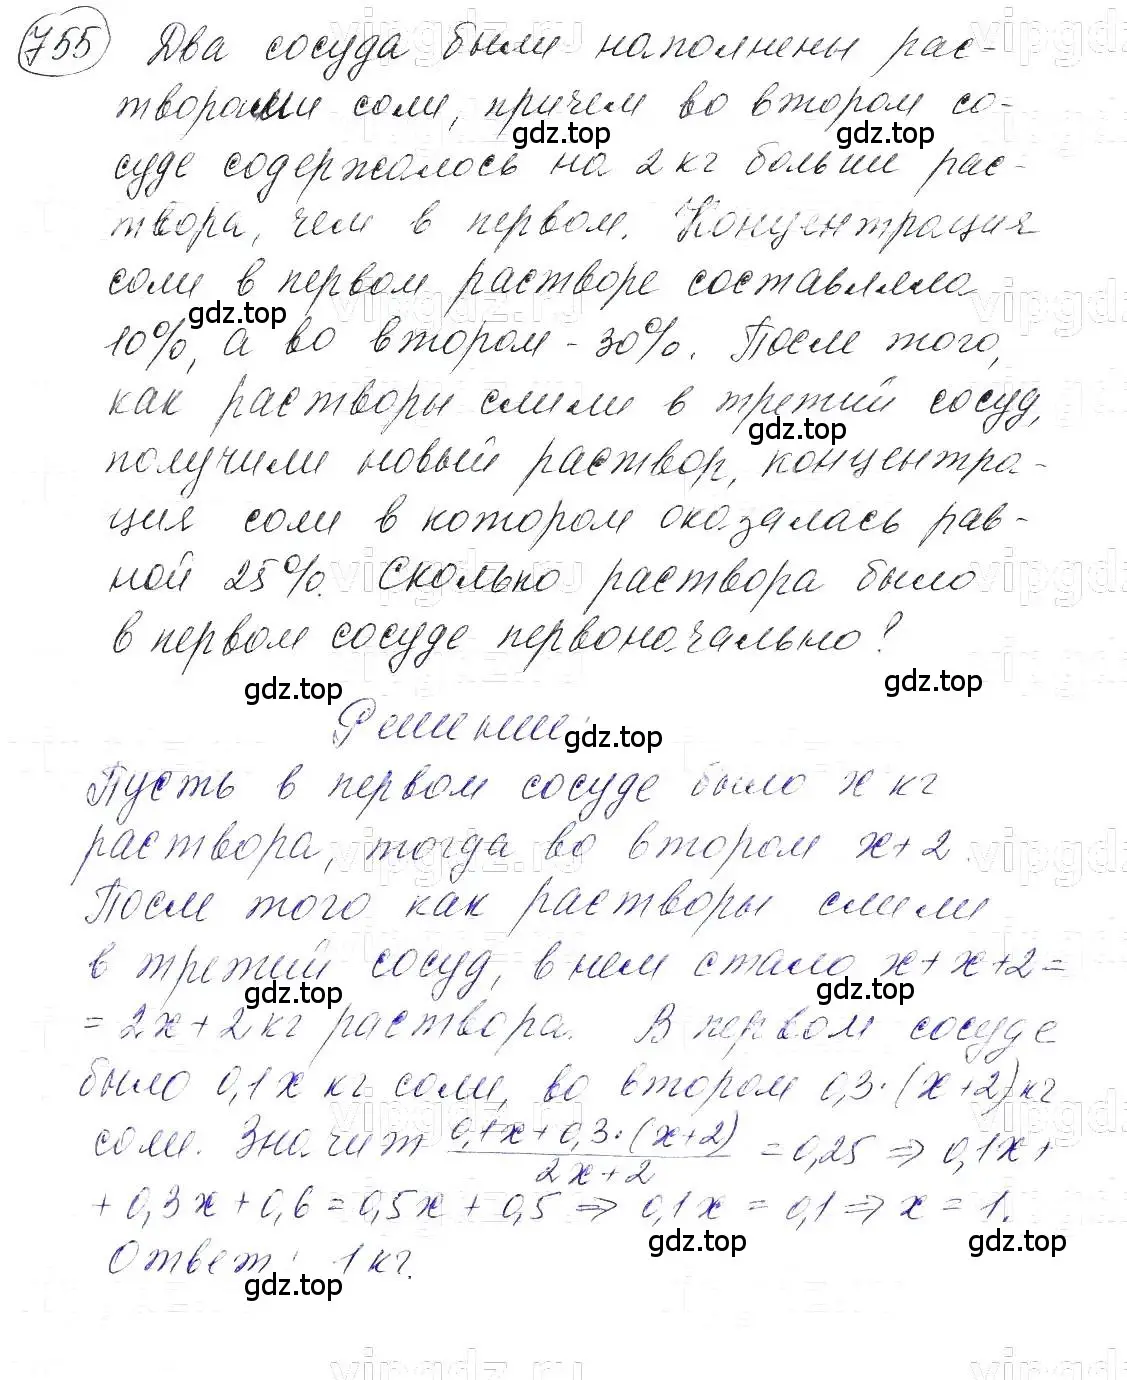 755 Два сосуда были наполнены рас-
творами соли, причем во втором со-
gdz.top gdz.top
суде содержалось на 2 кг больше рас-
твора, чем в первом. Концентрация
соли в первом растворе составляла
gdz.top
10%, а во втором - 30%. После того,
как растворы слили в третий сосуд,
gdz.top
получили новый раствор, концентра-
ция соли в котором оказалась рав-
ной 25%. Сколько раствора было
в первом сосуде первоначально?
gdz.top gdz.top
Решение:
gdz.top
Пусть в первом сосуде было x кг
раствора, тогда во втором x+2.
После того как растворы слили
в третий сосуд, в нем стало x+x+2=
gdz.top gdz.top
= 2x+2 кг раствора. В первом сосуде
было 0,1x кг соли, во втором 0,3·(x+2) кг
соли. Значит (0,1x+0,3·(x+2))/(2x+2) = 0,25 ⇒ 0,1x+
+ 0,3x+0,6 = 0,5x + 0,5 ⇒ 0,1x = 0,1 ⇒ x = 1.
gdz.top gdz.top
Ответ: 1 кг.
gdz.top